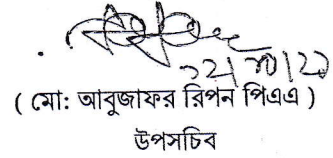 ( মো: আবুজাফর রিপন পিএএ )
উপসচিব